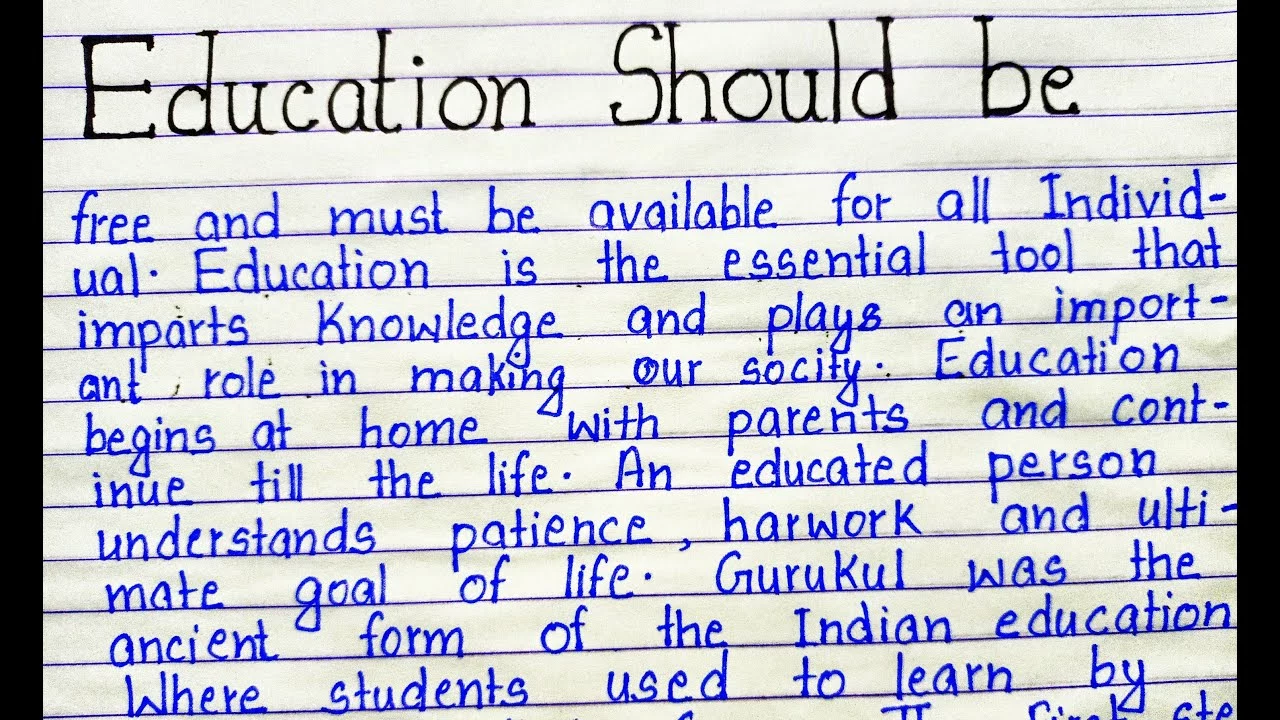 Education Should be
free and must be available for all Individ-
ual. Education is the essential tool that
imparts Knowledge and plays an import-
ant role in making our socity. Education
begins at home with parents and cont-
inue till the life. An educated person
understands patience, harwork and ulti-
mate goal of life. Gurukul was the
ancient form of the Indian education
Where students used to learn by